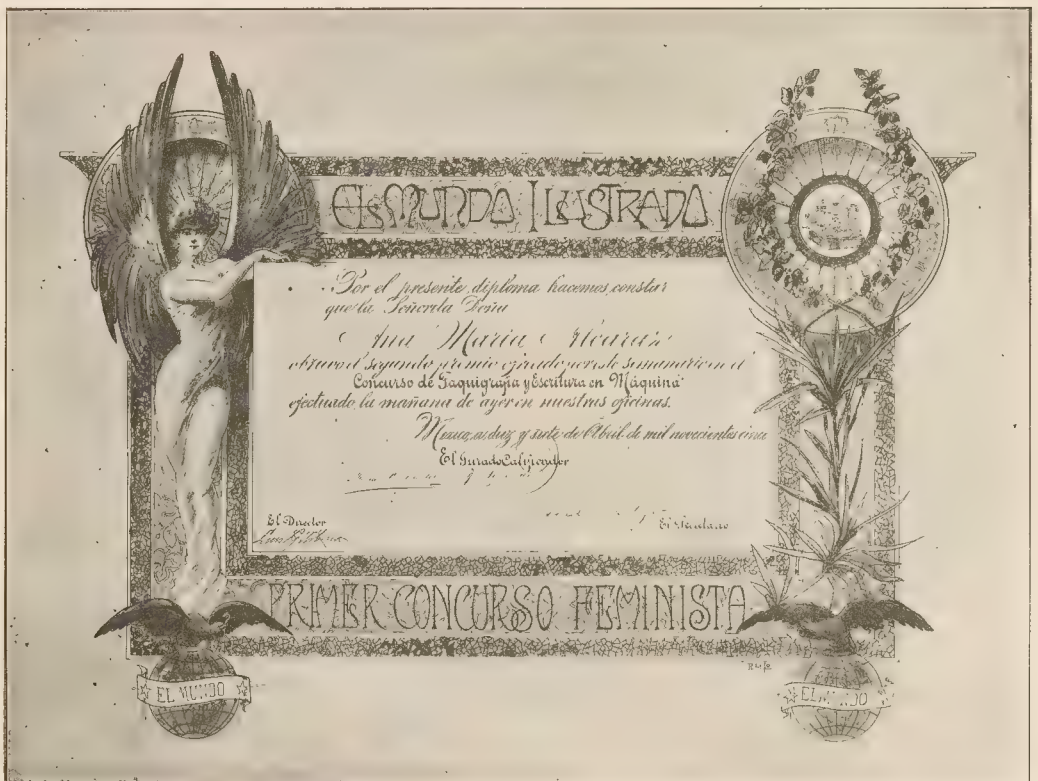 EL MUNDO ILUSTRADO
Por el presente diploma hacemos constar
que la Señorita Doña
Ana Maria
obtuvo el segundo premio ofrecido por este semanario en el
Concurso de Taquigrafia y Escritura en Máquina
efectuado la mañana de ayer en nuestras oficinas.
Mexico, a diez y siete de Abril de mil novecientos cinco
El Jurado Calificador
El Director
El Secretario
PRIMER CONCURSO FEMINISTA
EL MUNDO
EL MUNDO